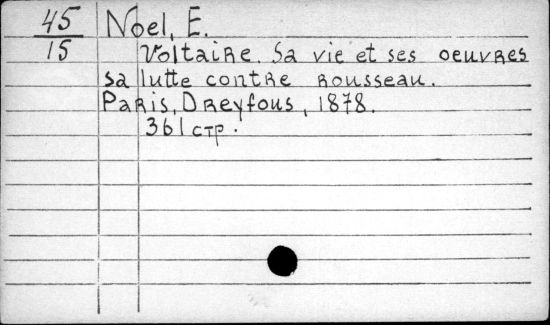 45 Noel, E.
15 Voltaire. Sa vie et ses oeuvres
sa lutte contre rousseau.
Paris, Dreyfous, 1878.
361 стр.